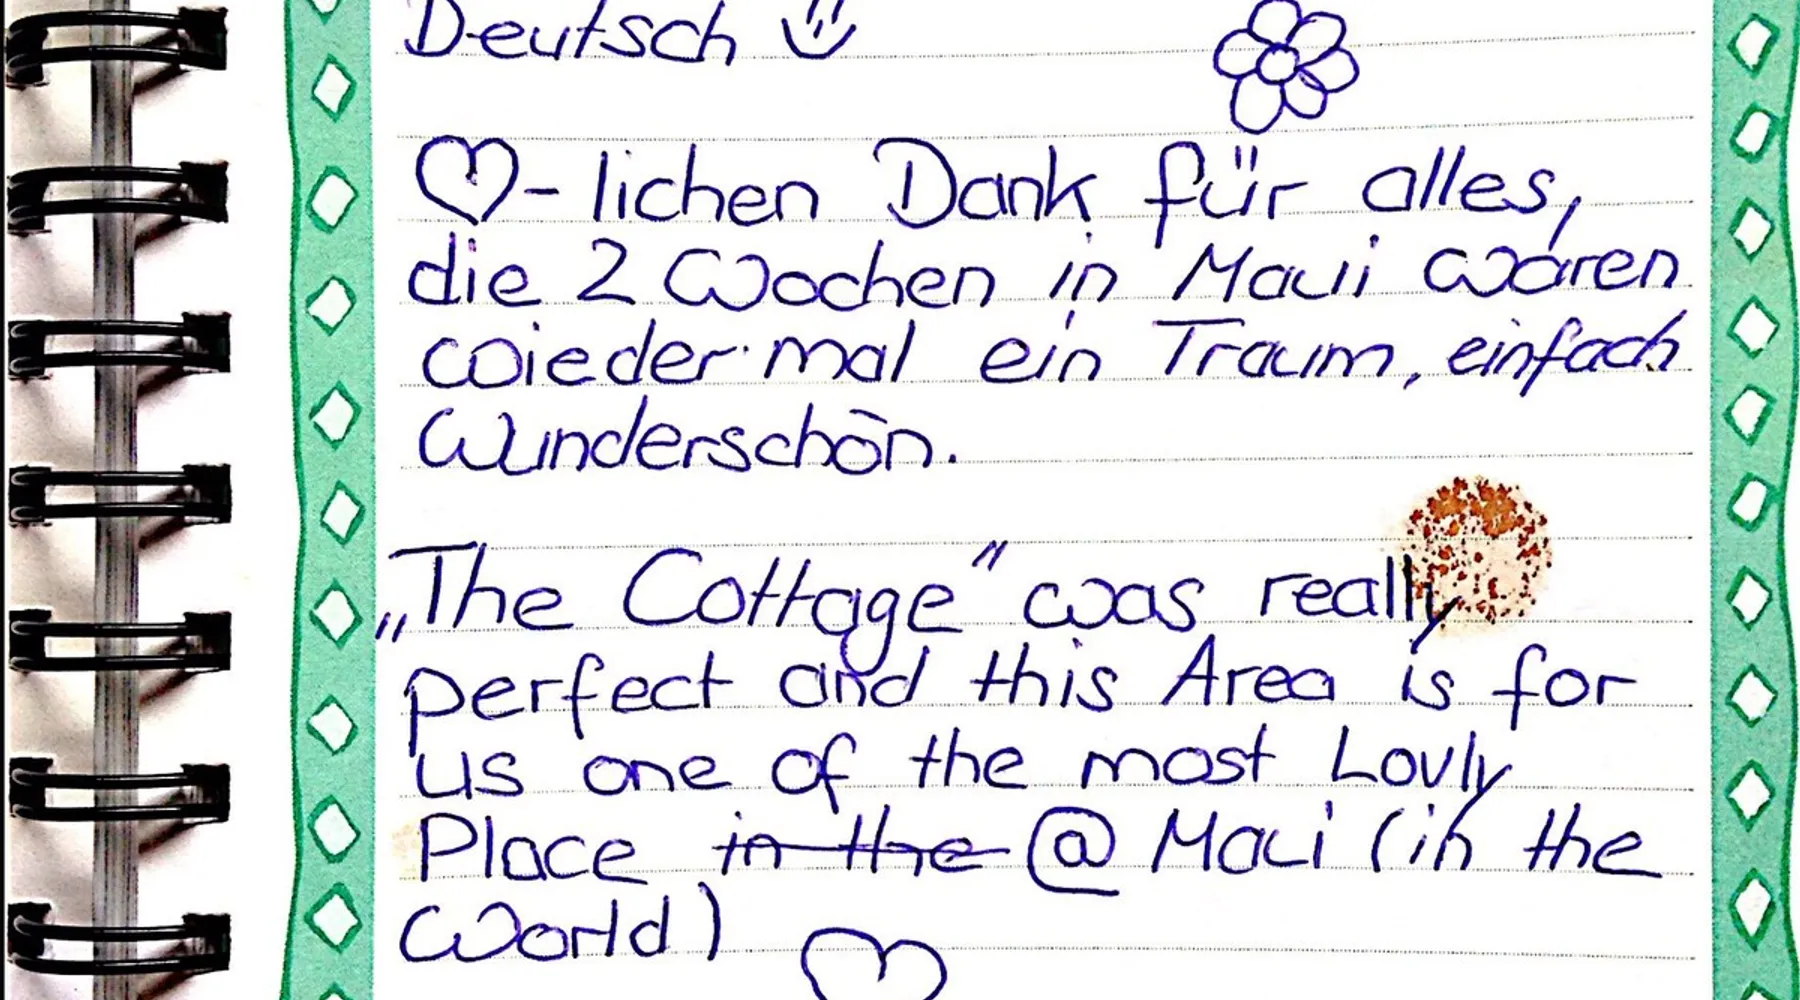 Deutsch
♡-lichen Dank für alles,
die 2 Wochen in Maui waren
wieder mal ein Traum, einfach
Wunderschön.
„The Cottage" was really
perfect and this Area is for
us one of the most Lovly
Place in the @ Maui (in the
World)